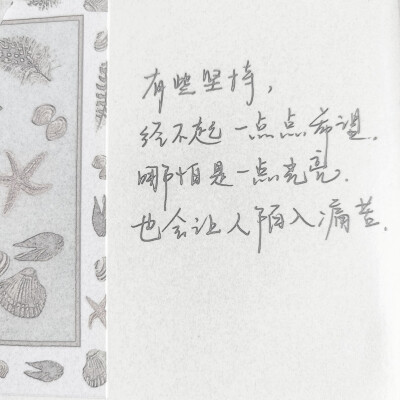 有些坚持，
经不起一点点希望.
哪怕是一点光亮.
也会让人陷入痛苦.